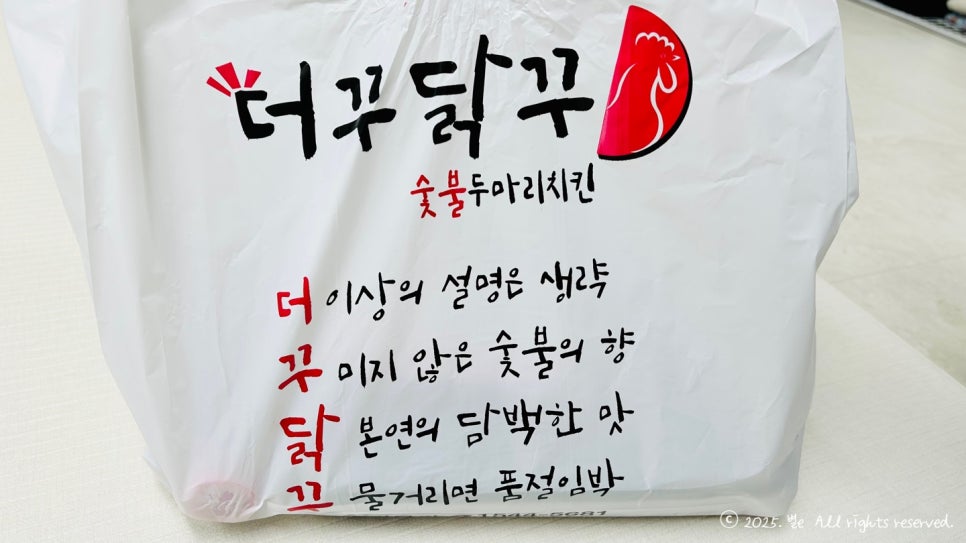 더꾸닭꾸
숯불두마리치킨
더 이상의 설명은 생략
꾸 미지 않은 숯불의 향
닭 본연의 담백한 맛
꾸 물거리면 품절임박
1544-5681
© 2025. 별e All rights reserved.